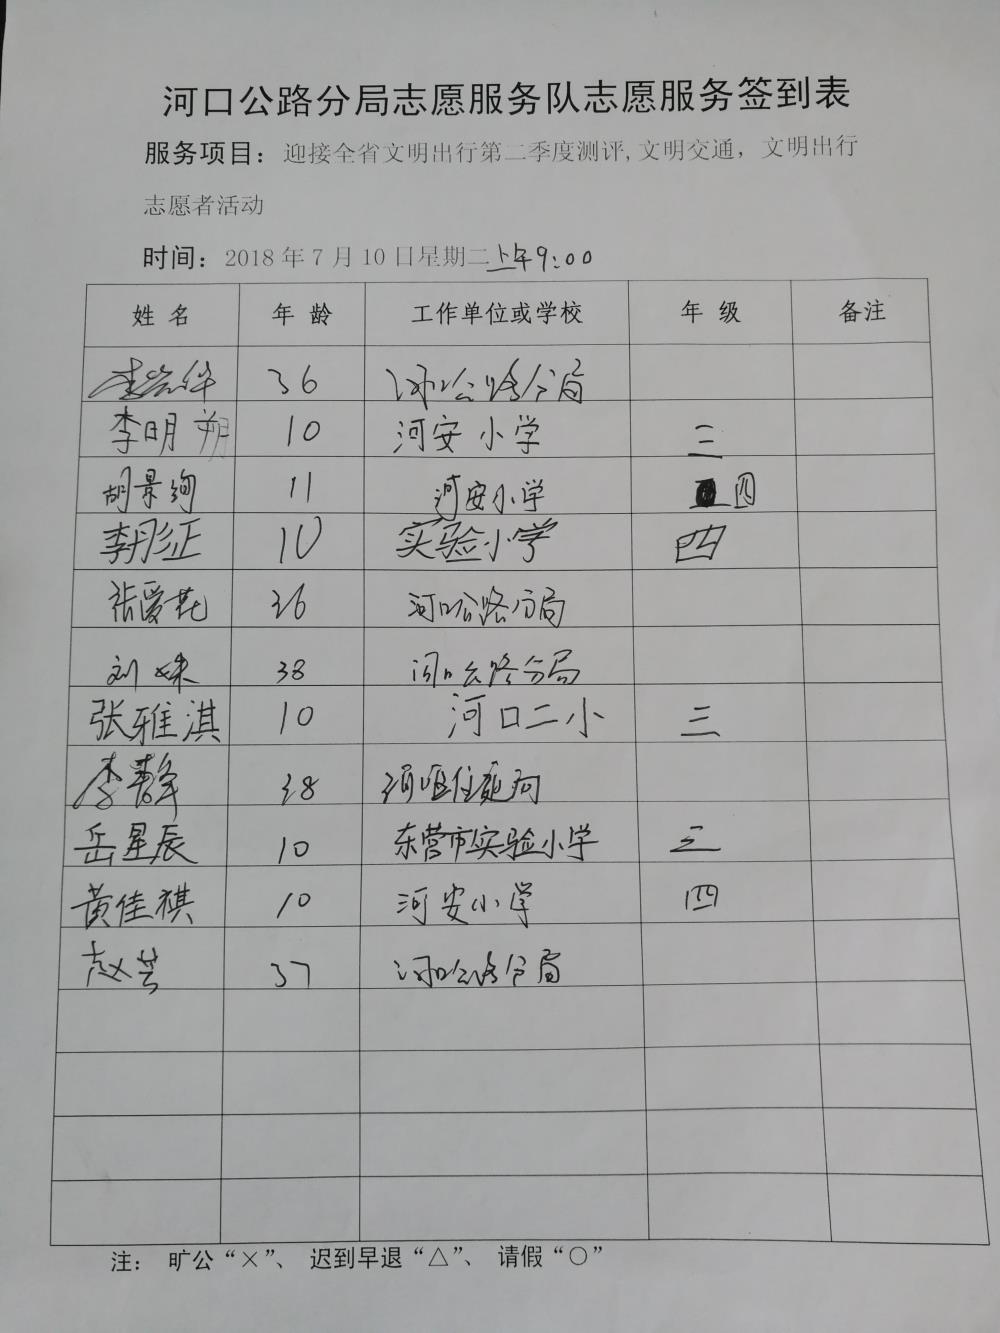 河口公路分局志愿服务队志愿服务签到表
服务项目：迎接全省文明出行第二季度测评,文明交通，文明出行
志愿者活动
时间：2018年7月10日星期二上午9:00
姓名 年龄 工作单位或学校 年级 备注
36 河口公路分局
李明朔 10 河安小学 三
胡景绚 11 河安小学 四
李彤正 10 实验小学 四
张爱花 36 河口公路分局
刘妹 38 河口公路分局
张雅淇 10 河口二小 三
李静 38
岳星辰 10 东营市实验小学 三
黄佳祺 10 河安小学 四
赵芸 37 河口公路分局
注：旷公“×”、迟到早退“△”、请假“○”